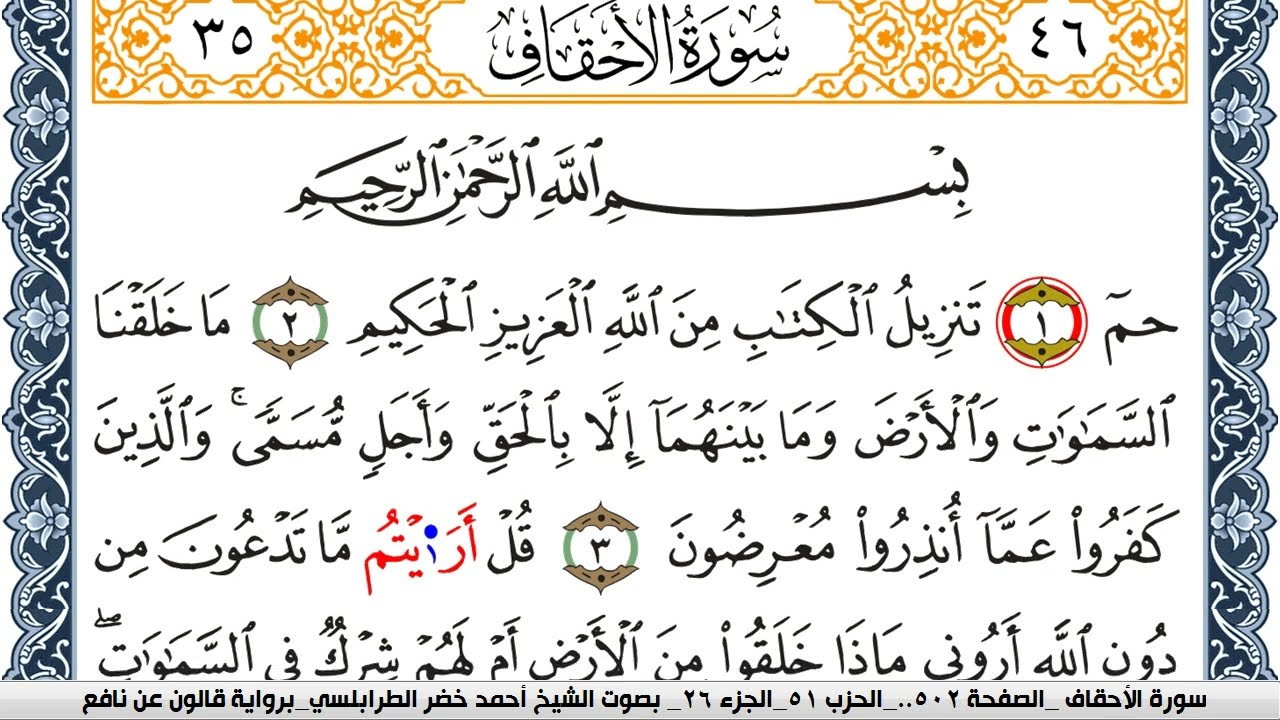 ٤٦ سُورَةُ الْأَحْقَافِ ٣٥
بِسْمِ ٱللَّهِ ٱلرَّحْمَٰنِ ٱلرَّحِيمِ
حمٓ ١ تَنزِيلُ ٱلْكِتَٰبِ مِنَ ٱللَّهِ ٱلْعَزِيزِ ٱلْحَكِيمِ ٢ مَا خَلَقْنَا
ٱلسَّمَٰوَٰتِ وَٱلْأَرْضَ وَمَا بَيْنَهُمَآ إِلَّا بِالْحَقِّ وَأَجَلٍ مُّسَمًّىۚ وَٱلَّذِينَ
كَفَرُوا۟ عَمَّآ أُنذِرُوا۟ مُعْرِضُونَ ٣ قُلْ أَرَٰيْتُم مَّا تَدْعُونَ مِن
دُونِ ٱللَّهِ أَرُونِي مَاذَا خَلَقُوا۟ مِنَ ٱلْأَرْضِ أَمْ لَهُمْ شِرْكٌ فِي ٱلسَّمَٰوَٰتِۖ
سورة الأحقاف _الصفحة ٥٠٢.._الحزب ٥١_الجزء ٢٦_ بصوت الشيخ أحمد خضر الطرابلسي_برواية قالون عن نافع